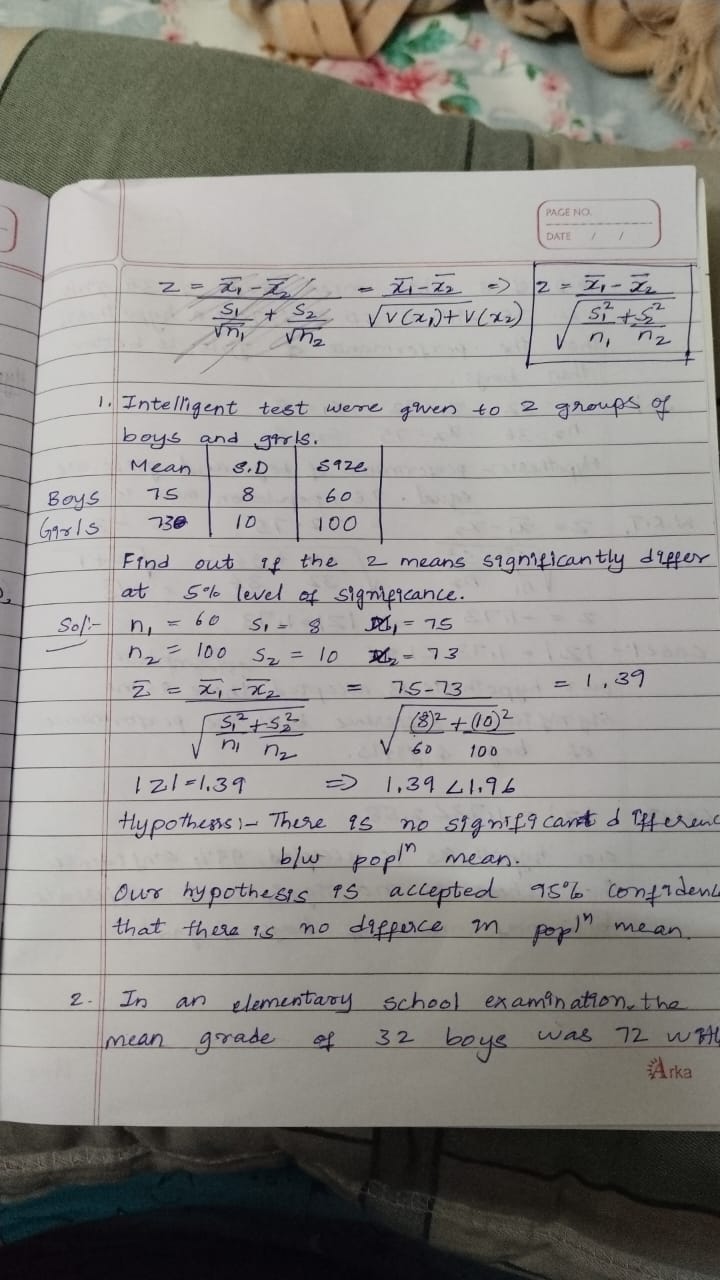 PAGE NO.
DATE / /
z = x̄₁ - x̄₂ / (s₁/√n₁ + s₂/√n₂) = x̄₁ - x̄₂ / √(V(x₁) + V(x₂)) => z = x̄₁ - x̄₂ / √(s₁²/n₁ + s₂²/n₂)
1. Intelligent test were given to 2 groups of
boys and girls.
Mean S.D size
Boys 75 8 60
Girls 73 10 100
Find out if the 2 means significantly differ
at 5% level of significance.
Sol:- n₁ = 60 S₁ = 8 x̄₁ = 75
n₂ = 100 S₂ = 10 x̄₂ = 73
z̄ = x̄₁ - x̄₂ / √(s₁²/n₁ + s₂²/n₂) = 75-73 / √((8)²/60 + (10)²/100) = 1.39
|z| = 1.39 => 1.39 < 1.96
Hypothesis:- There is no significant differenc
b/w popln mean.
Our hypothesis is accepted 95% confidenc
that there is no differce in popln mean.
2. In an elementary school examination, the
mean grade of 32 boys was 72 with
Arka